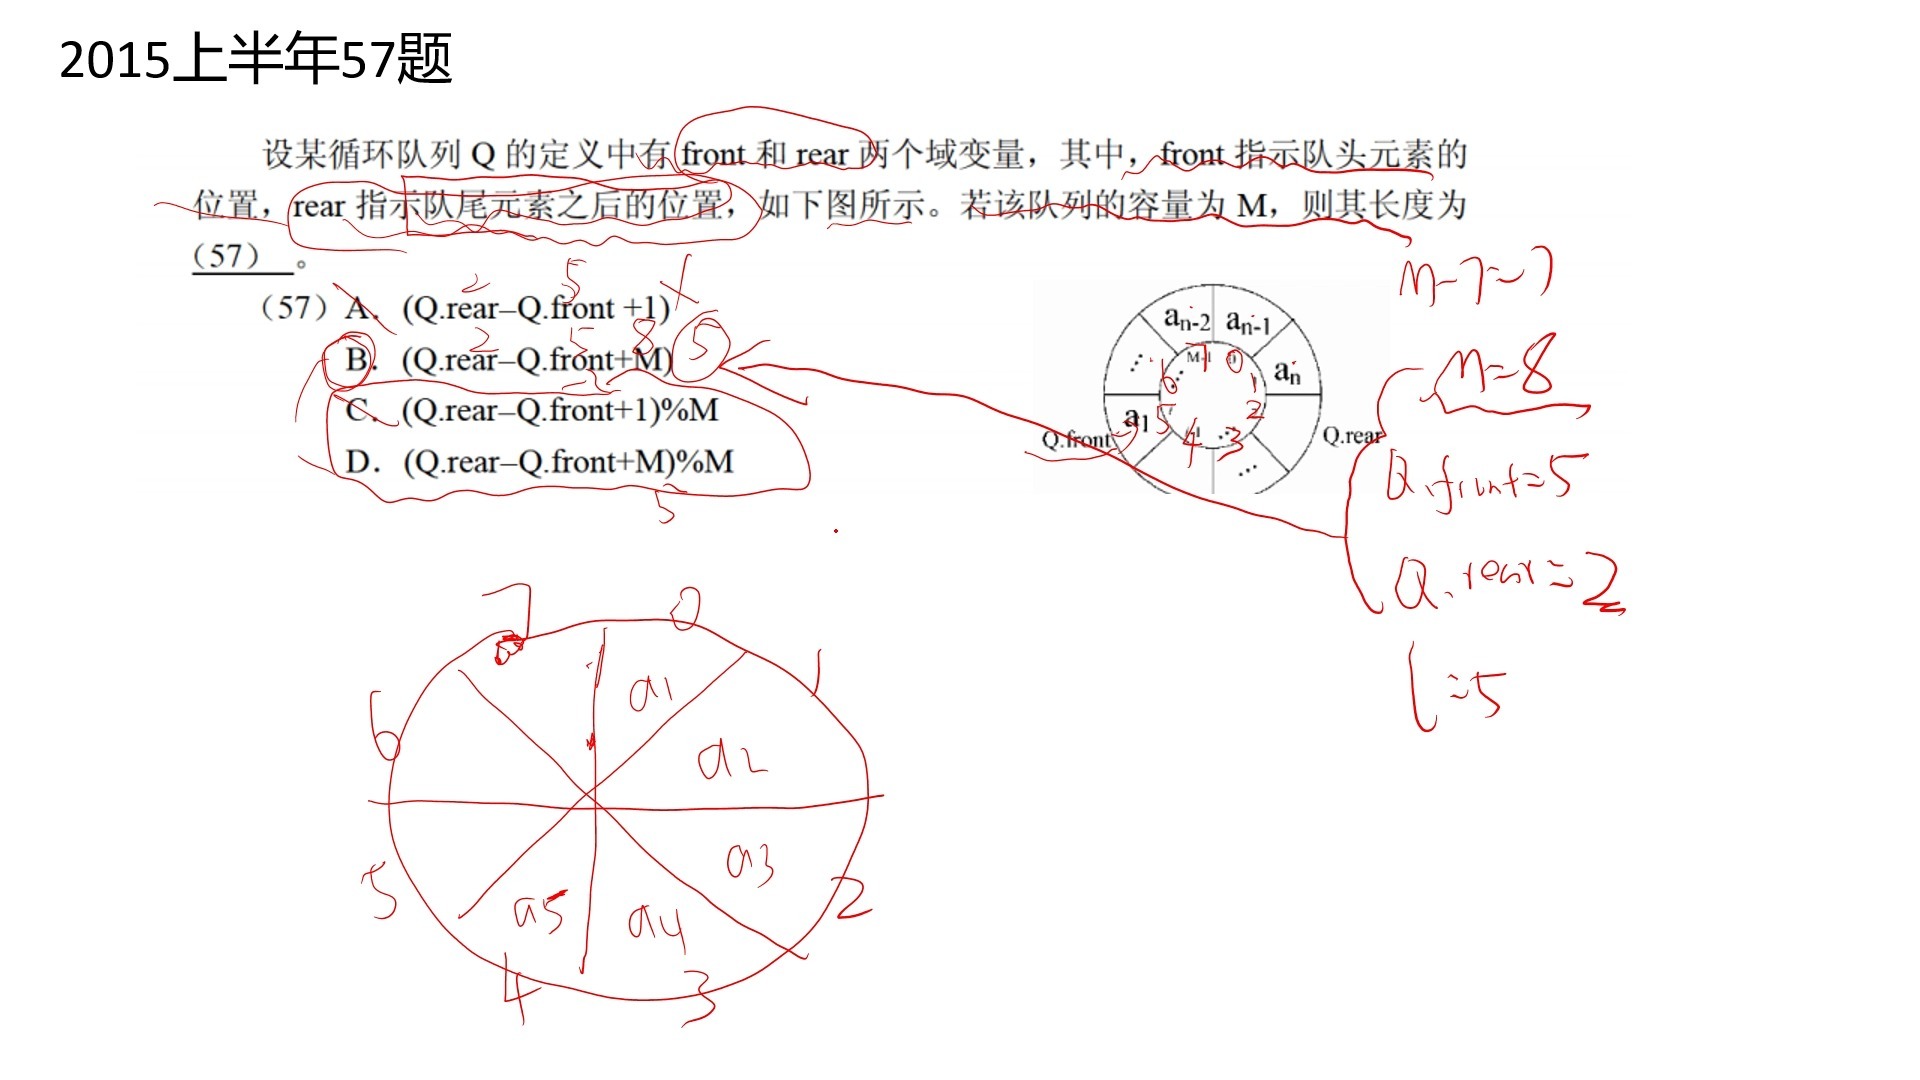 2015上半年57题
设某循环队列 Q 的定义中有 front 和 rear 两个域变量，其中，front 指示队头元素的
位置，rear 指示队尾元素之后的位置，如下图所示。若该队列的容量为 M，则其长度为
（57） 。
（57）A．(Q.rear–Q.front +1)
B．(Q.rear–Q.front+M)
C．(Q.rear–Q.front+1)%M
D．(Q.rear–Q.front+M)%M
2 5
2 5 8 5
5
an-2 an-1
⋮ M-1 7 0 an
6 1
a1 5 2
4 3
Q.front Q.rear
…
M-1=7
M=8
Q.front=5
Q.rear=2
l=5
7 0
1
6 a1
a2
a3
5 a5 a4 2
4 3